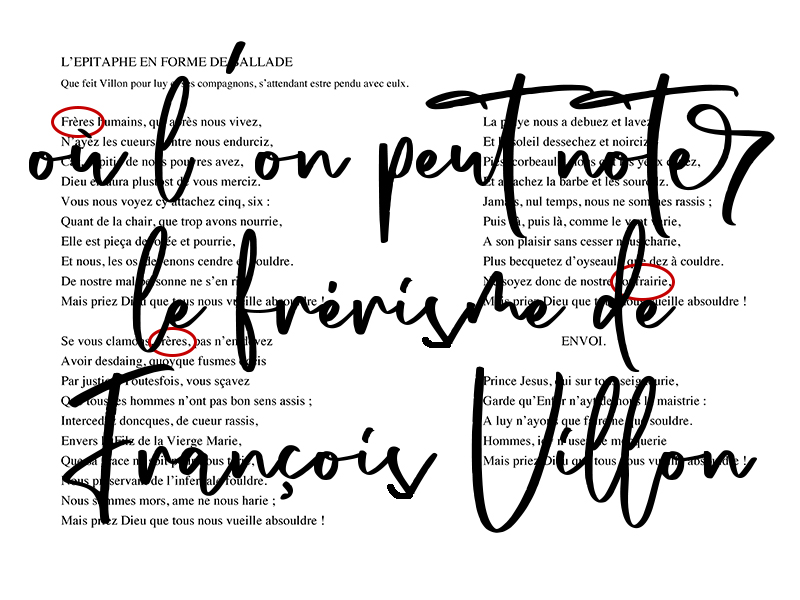 où l'on peut noter
le frérisme de
François Villon
L'EPITAPHE EN FORME DE BALLADE
Que feit Villon pour luy et ses compagnons, s'attendant estre pendu avec eulx.
Frères humains, qui après nous vivez,
N'ayez les cueurs contre nous endurciz,
Car, si pitié de nous pouvres avez,
Dieu en aura plustost de vous merciz.
Vous nous voyez cy attachez cinq, six :
Quant de la chair, que trop avons nourrie,
Elle est pieça devorée et pourrie,
Et nous, les os, devenons cendre et pouldre.
De nostre mal personne ne s'en rie,
Mais priez Dieu que tous nous vueille absouldre !
Se vous clamons, frères, pas n'en devez
Avoir desdaing, quoyque fusmes occis
Par justice. Toutesfois, vous sçavez
Que tous les hommes n'ont pas bon sens assis ;
Intercedez doncques, de cueur rassis,
Envers le Filz de la Vierge Marie,
Que sa grace ne soit pour nous tarie,
Nous préservant de l'infernale fouldre.
Nous sommes mors, ame ne nous harie ;
Mais priez Dieu que tous nous vueille absouldre !
La pluye nous a debuez et lavez,
Et le soleil dessechez et noirciz,
Pies, corbeaulx, nous ont les yeux cavez,
Et arrachez la barbe et les sourcilz.
Jamais, nul temps, nous ne sommes rassis ;
Puis çà, puis là, comme le vent varie,
A son plaisir sans cesser nous charie,
Plus becquetez d'oyseaulx que dez à couldre.
Ne soyez donc de nostre confrairie,
Mais priez Dieu que tous nous vueille absouldre !
ENVOI.
Prince Jesus, qui sur tous seigneurie,
Garde qu'Enfer n'ayt de nous la maistrie :
A luy n'ayons que faire ne que souldre.
Hommes, icy n'usez de mocquerie
Mais priez Dieu que tous nous vueille absouldre !